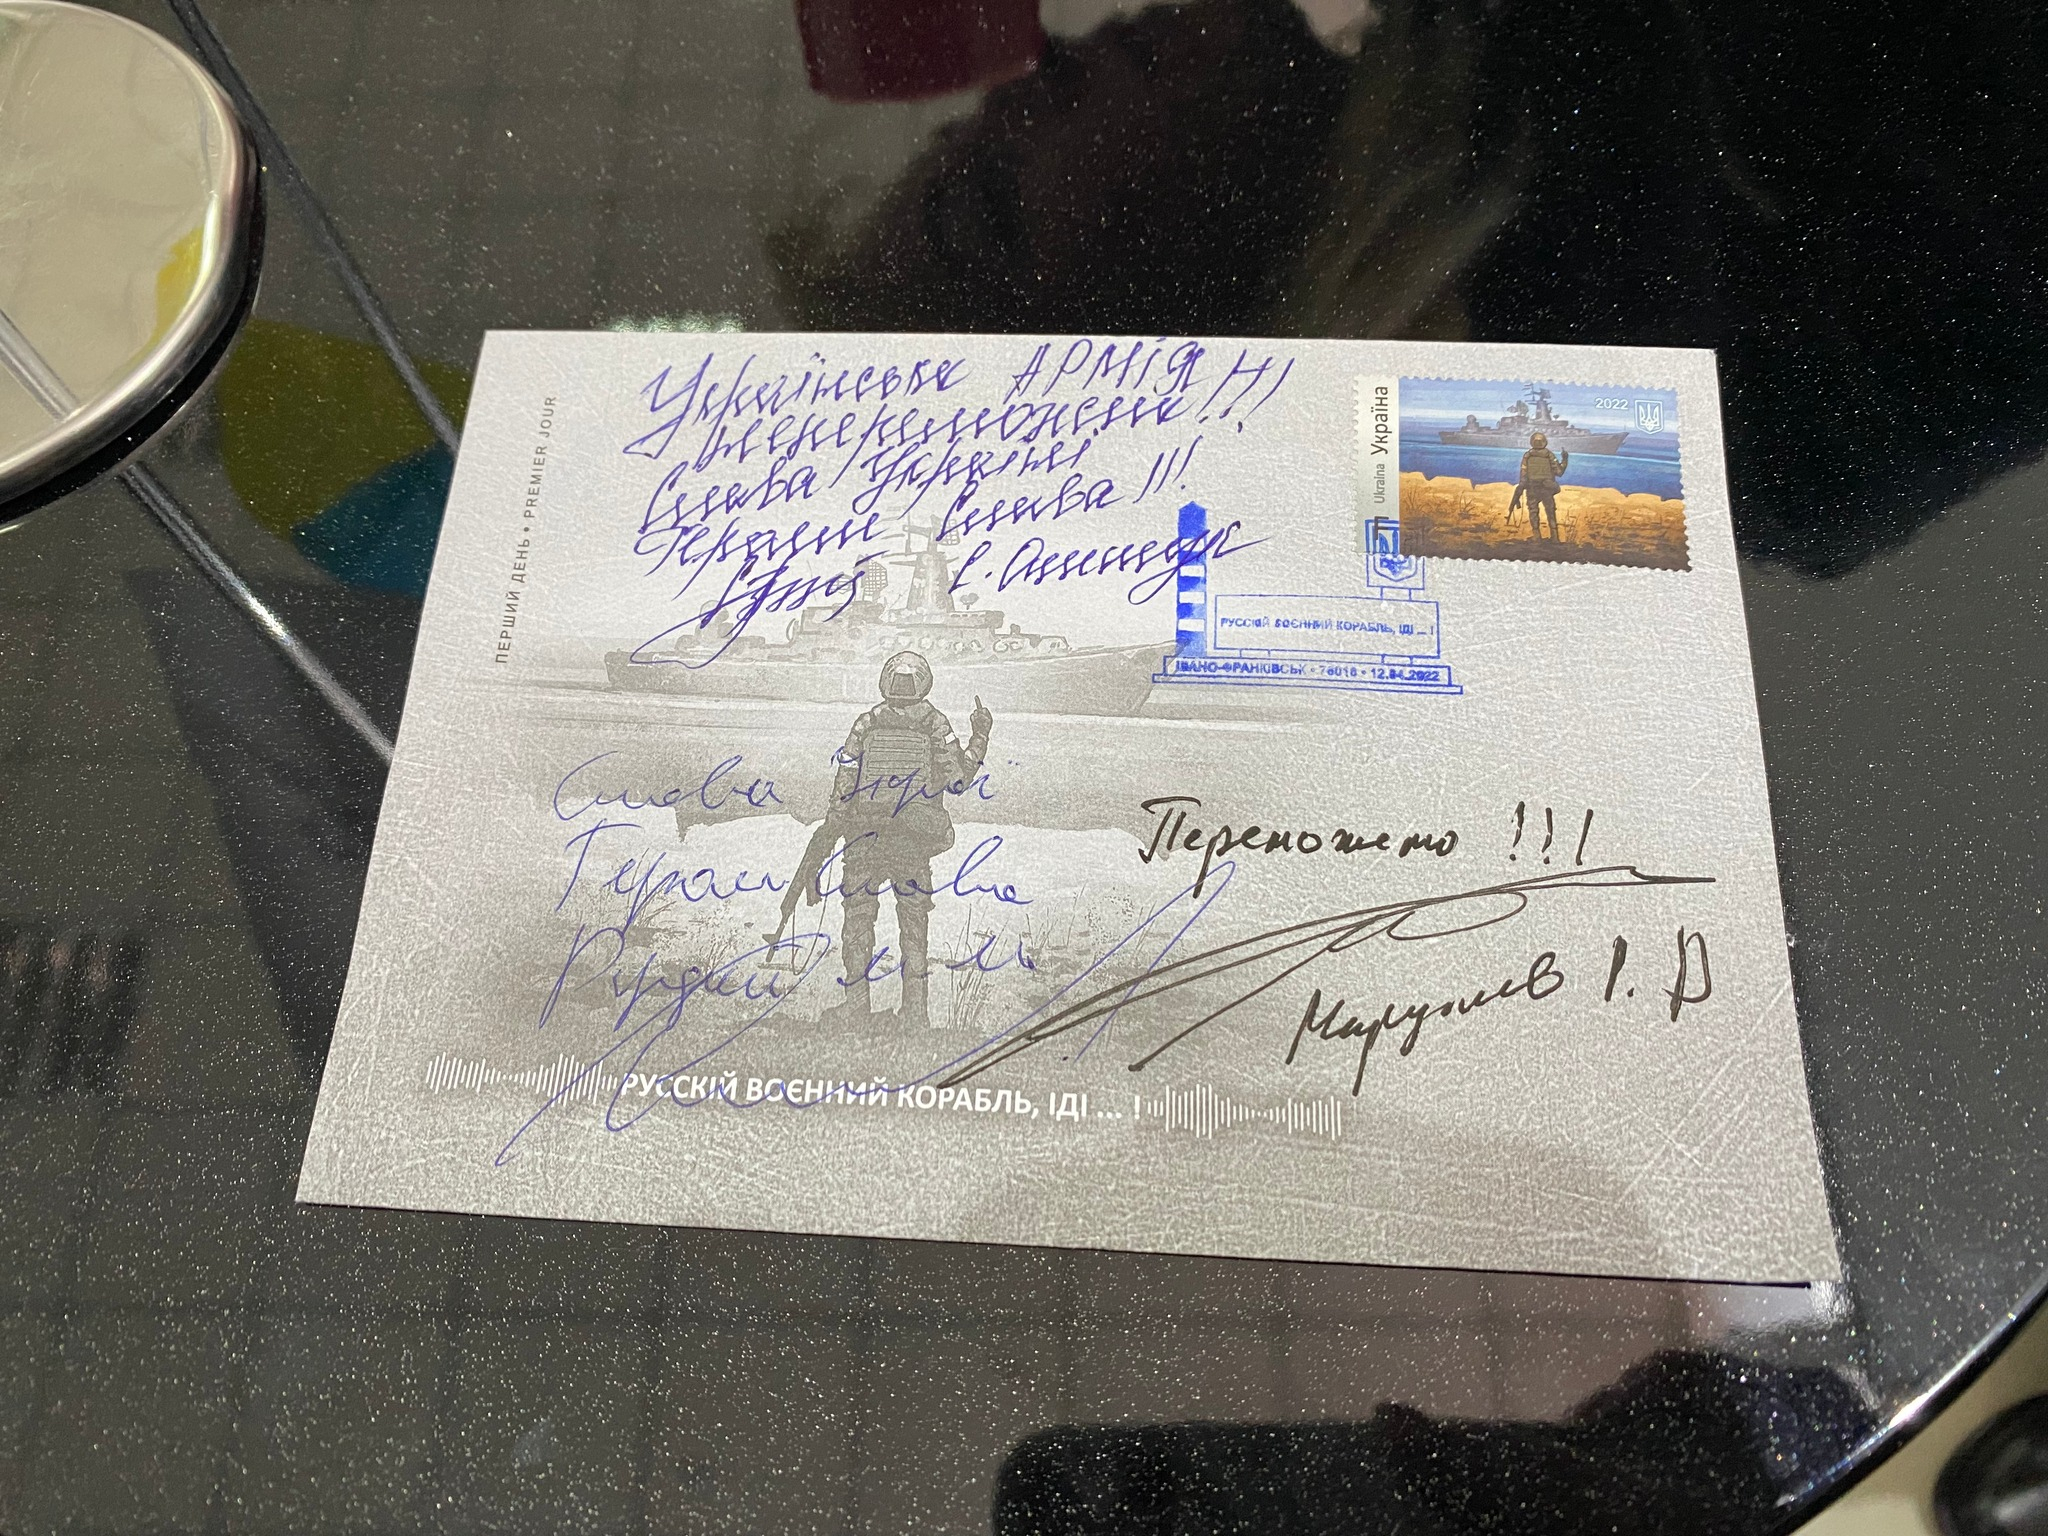 ПЕРШИЙ ДЕНЬ • PREMIER JOUR
Українська АРМІЯ Н!
непереможна!!!
Слава Україні
Героям Слава!!!
с.
Ukraina Україна
2022
РУССКІЙ ВОЄННИЙ КОРАБЛЬ, ІДІ ... !
ІВАНО-ФРАНКІВСЬК • 76018 • 12.04.2022
Слава Україні
Героям Слава
Переможемо !!!
РУССКІЙ ВОЄННИЙ КОРАБЛЬ, ІДІ ... !